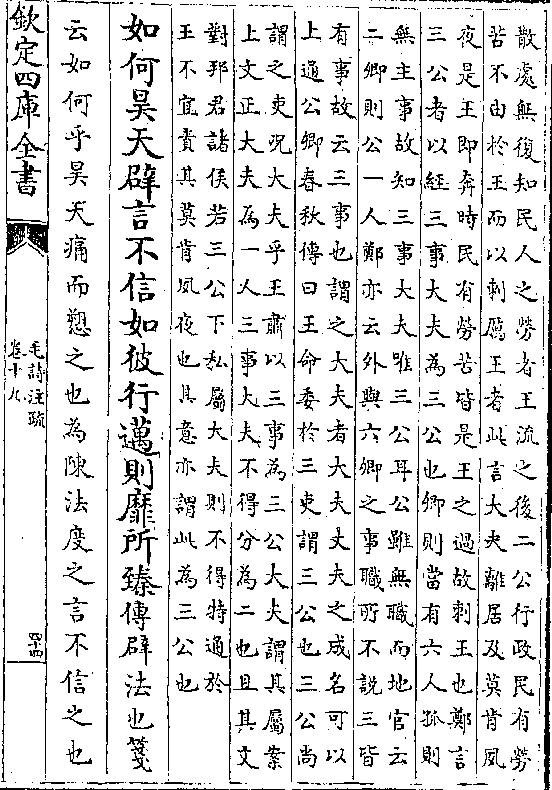 散處無復知民人之勞者王流之後二公行政民有勞
苦不由於王而以刺厲王者此言大夫離居及莫肯夙
夜是王即奔時民有勞苦皆是王之過故刺王也鄭言
三公者以經三事大夫為三公也卿則當有六人孤則
無主事故知三事大夫唯三公耳公雖無職而地官云
二卿則公一人鄭亦云外與六卿之事職所不說三皆
有事故云三事也謂之大夫者大夫丈夫之成名可以
上通公卿春秋傳曰王命委於三吏謂三公也三公尚
謂之吏況大夫乎王肅以三事為三公大夫謂其屬案
上文正大夫為一人三事大夫不得分為二也且其文
對邦君諸侯若三公下私屬大夫則不得特通於
王不宜責其莫肯夙夜也其意亦謂此為三公也
如何昊天辟言不信如彼行邁則靡所臻傳辟法也箋
云如何乎昊天痛而愬之也為陳法度之言不信之也
欽定四庫全書
毛詩注疏
卷十九
四十四